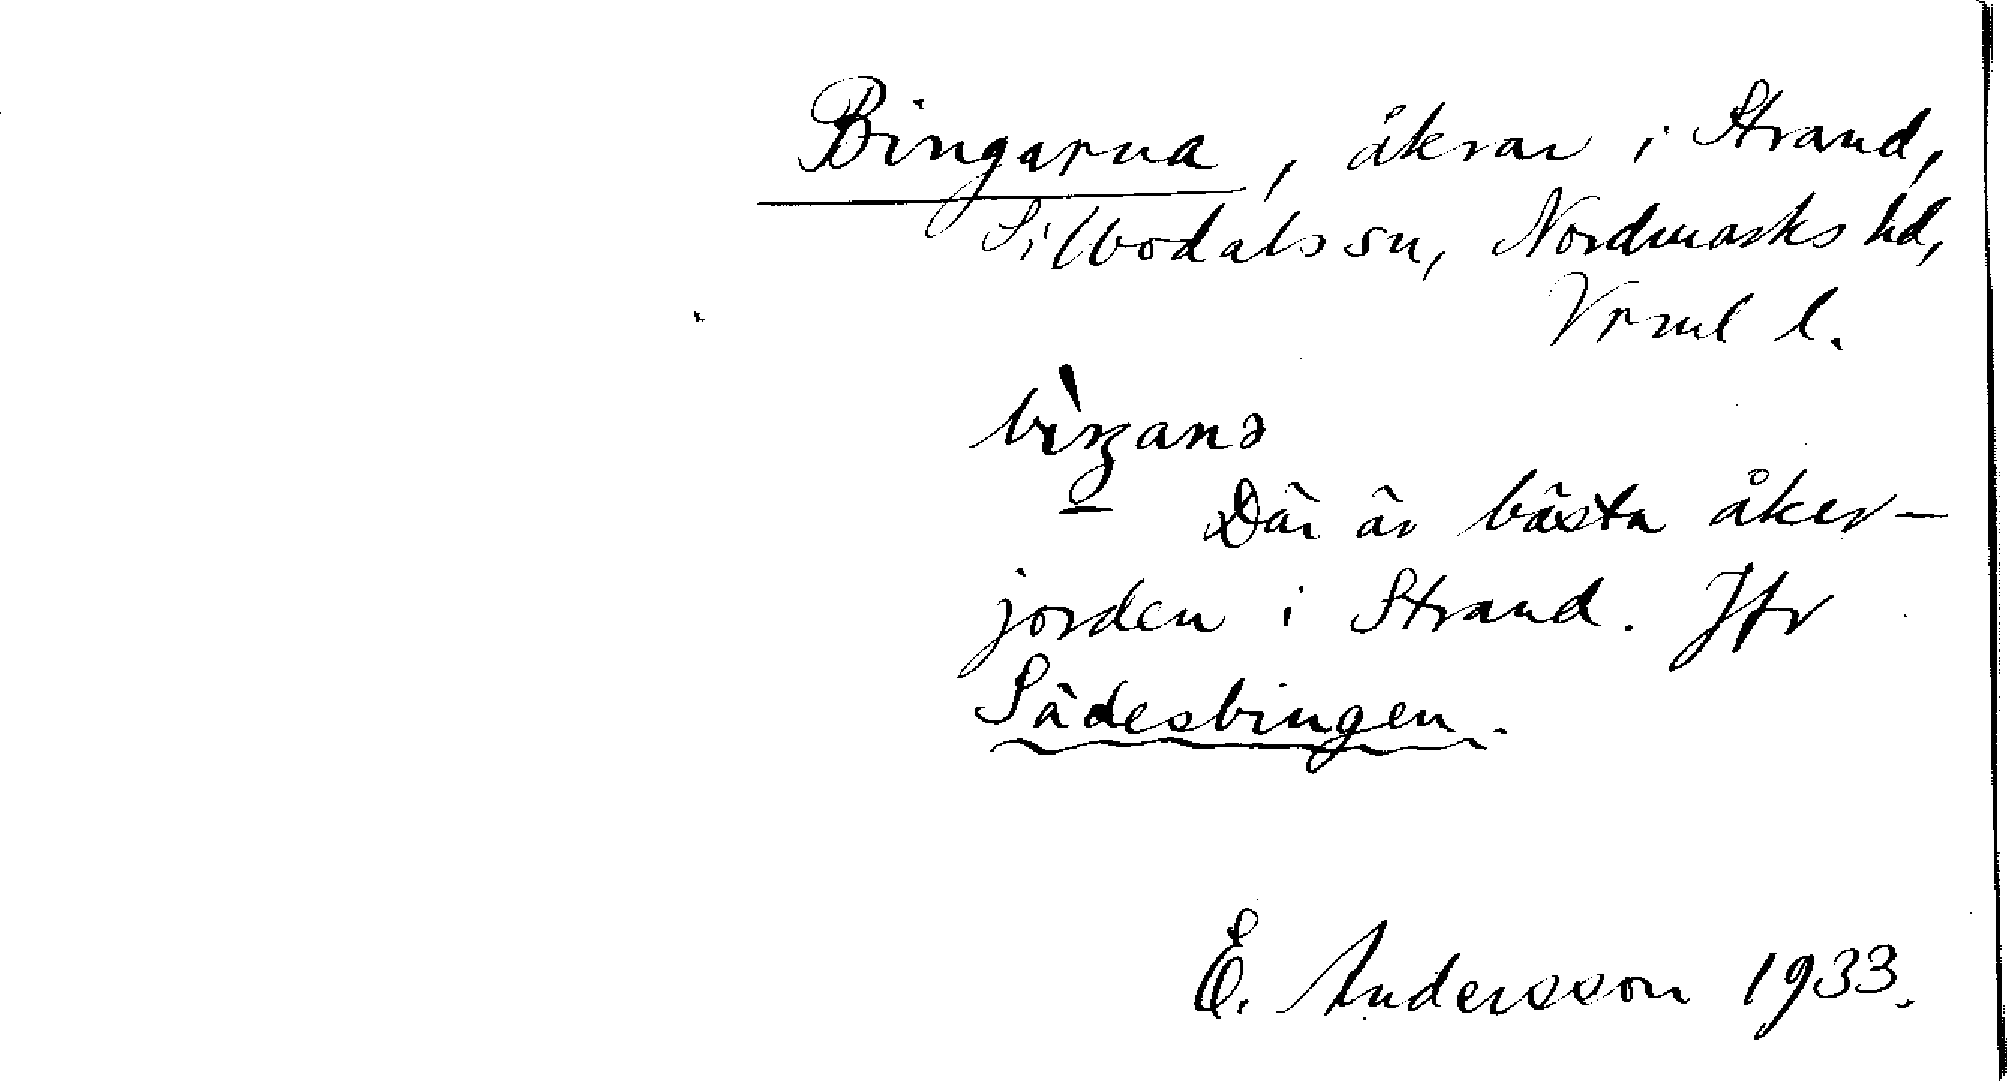 Bingarna, åkrar i Strand,
Silbodals sn, Nordmarks hd,
Vrml l.
Där är bästa åker-
jorden i Strand. Jfr
Sädesbingen.
E. Andersson 1933.